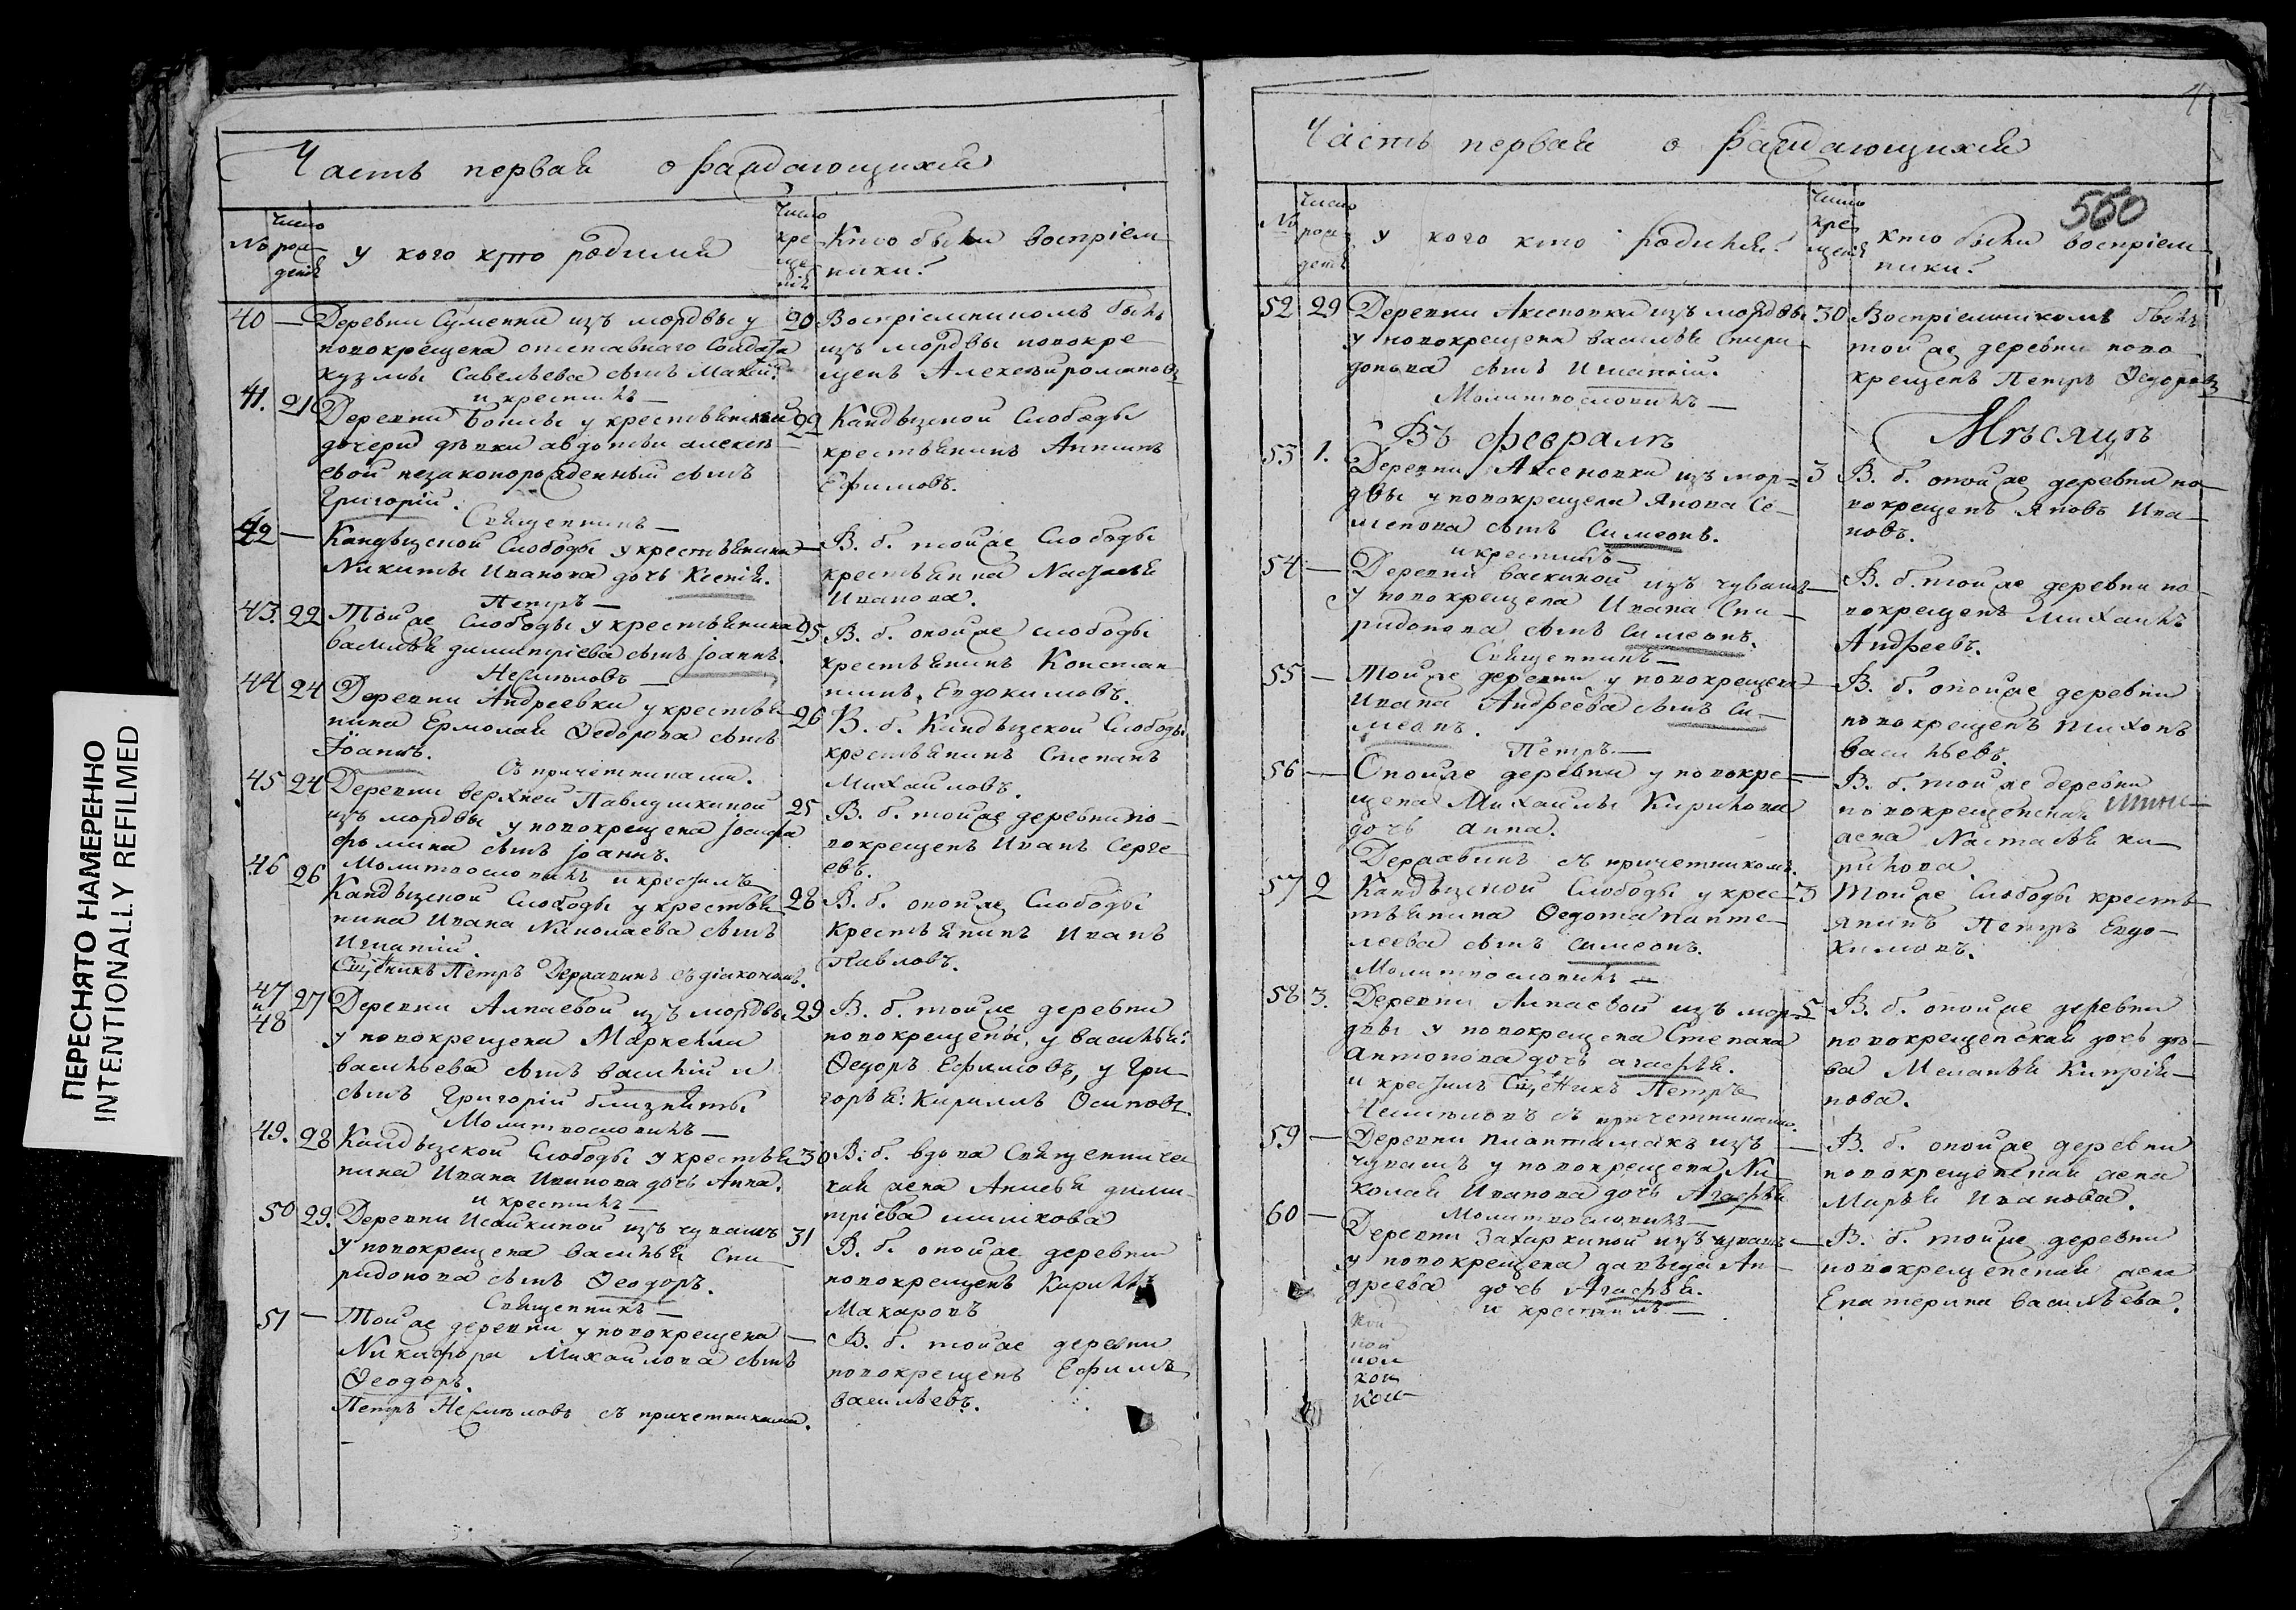 ПЕРЕСНЯТО НАМЕРЕННО
INTENTIONALLY REFILMED
Часть первая о раждающихся
№
Число рождения
у кого кто родился
Число крещения
Кто были воспріемники?
40 —
Деревни Суменки изъ мордвы у
новокрещена отставнаго Солдата
Кузмы Савельева сынъ
и крестилъ —
20
Воспріемникомъ былъ
изъ мордвы новокре
щенъ Алексей романовъ
41. 21
Деревни у крестьянской
дочери девки авдотьи алексе
евой незаконорожденный сынъ
Григорій.
Священникъ —
22
Кандызской Слободы
крестьянинъ Антипъ
Ефимовъ.
42 —
Кандызской Слободы у крестьянина
Никиты Иванова дочь Ксенія.
Петръ —
—
В. б. тойже Слободы
крестьянка Настасья
Иванова.
43. 22
Тойже Слободы у крестьянина
василья димитріева сынъ іоаннъ.
Несмѣловъ —
25
В. б. оной же слободы
крестьянинъ Констан
тинъ Евдокимовъ.
44 24
Деревни Андреевки у крестья
нина Ермолая Ѳедорова сынъ
Іоаннъ.
Съ причетниками.
26
В. б. Кандызской Слободы
крестьянинъ Степанъ
Михаиловъ.
45 24
Деревни верхней Павлушкиной
изъ мордвы у новокрещена іосифа
фомина сынъ іоаннъ.
Молитвословилъ и крестилъ
25
В. б. тойже деревни но—
вокрещенъ Иванъ Серге
евъ.
46 26
Кандызской Слободы у крестья
нина Ивана Николаева сынъ
Игнатій
Сщенникъ Петръ Державинъ съ діакономъ.
28
В. б. оной же Слободы
крестьянинъ Иванъ
Павловъ.
47 и 48 27
Деревни Алпаевой изъ мордвы
у новокрещена Маркелла
васильева сынъ василій и
сынъ Григорій близняты
Молитвословилъ —
29
В. б. тойже деревни
новокрещены, у василья:
Ѳедоръ Ефимовъ, у Гри
горья: Кириллъ Осиповъ.
49. 28
Кандызской Слободы у крестья
нина Ивана Иванова дочь Анна.
и крестилъ —
30
В. б. вдова Священниче
ская жена Анисья дими
тріева
50 29.
Деревни Исайкиной изъ чувашъ
у новокрещена василья Спи
ридонова сынъ Ѳеодоръ.
Священникъ —
31
В. б. оной же деревни
новокрещенъ Кирилъ
Макаровъ
51 —
Тойже деревни у новокрещена
Никифора Михаилова сынъ
Ѳеодоръ.
Петръ Несмѣловъ съ причетниками.
—
В. б. тойже деревни
новокрещенъ Ефимъ
васильевъ.
4
Часть первая о раждающихся
560
№
Число рождения
у кого кто родился?
Число крещения
кто были воспріемники?
52 29
Деревни Аксеновки изъ мордвы
у новокрещена василья Спири
донова сынъ Игнатій.
Молитвословилъ —
30
Воспріемникомъ былъ
тойже деревни ново
крещенъ Петръ Ѳедоровъ
Въ февралѣ
Мѣсяцѣ
53 1.
Деревни Аксеновки изъ мор=
двы у новокрещена Якова Се—
менова сынъ Симеонъ.
и крестилъ —
3
В. б. тойже деревни но—
вокрещенъ Яковъ Ива—
новъ.
54 —
Деревни васкиной изъ чувашъ
у новокрещена Ивана Спи—
ридонова сынъ Симеонъ.
Священникъ —
—
В. б. тойже деревни но—
вокрещенъ михаилъ
Андреевъ.
55 —
Тойже деревни у новокрещена
Ивана Андреева сынъ Си—
меонъ.
Петръ. —
—
В. б. онойже деревни
новокрещенъ тихонъ
васильевъ.
56 —
Онойже деревни у новокре—
щена Михаилы Кирилова
дочь анна.
Державинъ съ причетникомъ.
—
В. б. тойже деревни
новокрещенская
жена Настасья ки—
рилова.
57 2
Кандызской Слободы у крес—
тьянина Ѳедота панте—
леева сынъ симеонъ.
Молитвословилъ —
3
Тойже Слободы кресть—
янинъ Петръ Евдо—
кимовъ.
58 3.
Деревни Алпаевой изъ мор—
двы у новокрещена Степана
антонова дочь агафья.
и крестилъ Сщенникъ Петръ
Несмѣловъ съ причетниками.
5
В. б. онойже деревни
новокрещенская дочь дѣ—
ва Меланья Кипрія—
нова.
59 —
Деревни изъ
чувашъ у новокрещена Ни
колая Иванова дочь Агафья
Молитвословилъ —
—
В. б. онойже деревни
новокрещенская жена
Марья Иванова.
60 —
Деревни Захаркиной изъ чувашъ
у новокрещена давыда Ан—
дреева дочь Агафья.
и крестилъ —
—
В. б. тойже деревни
новокрещенская жена
Екатерина васильева.